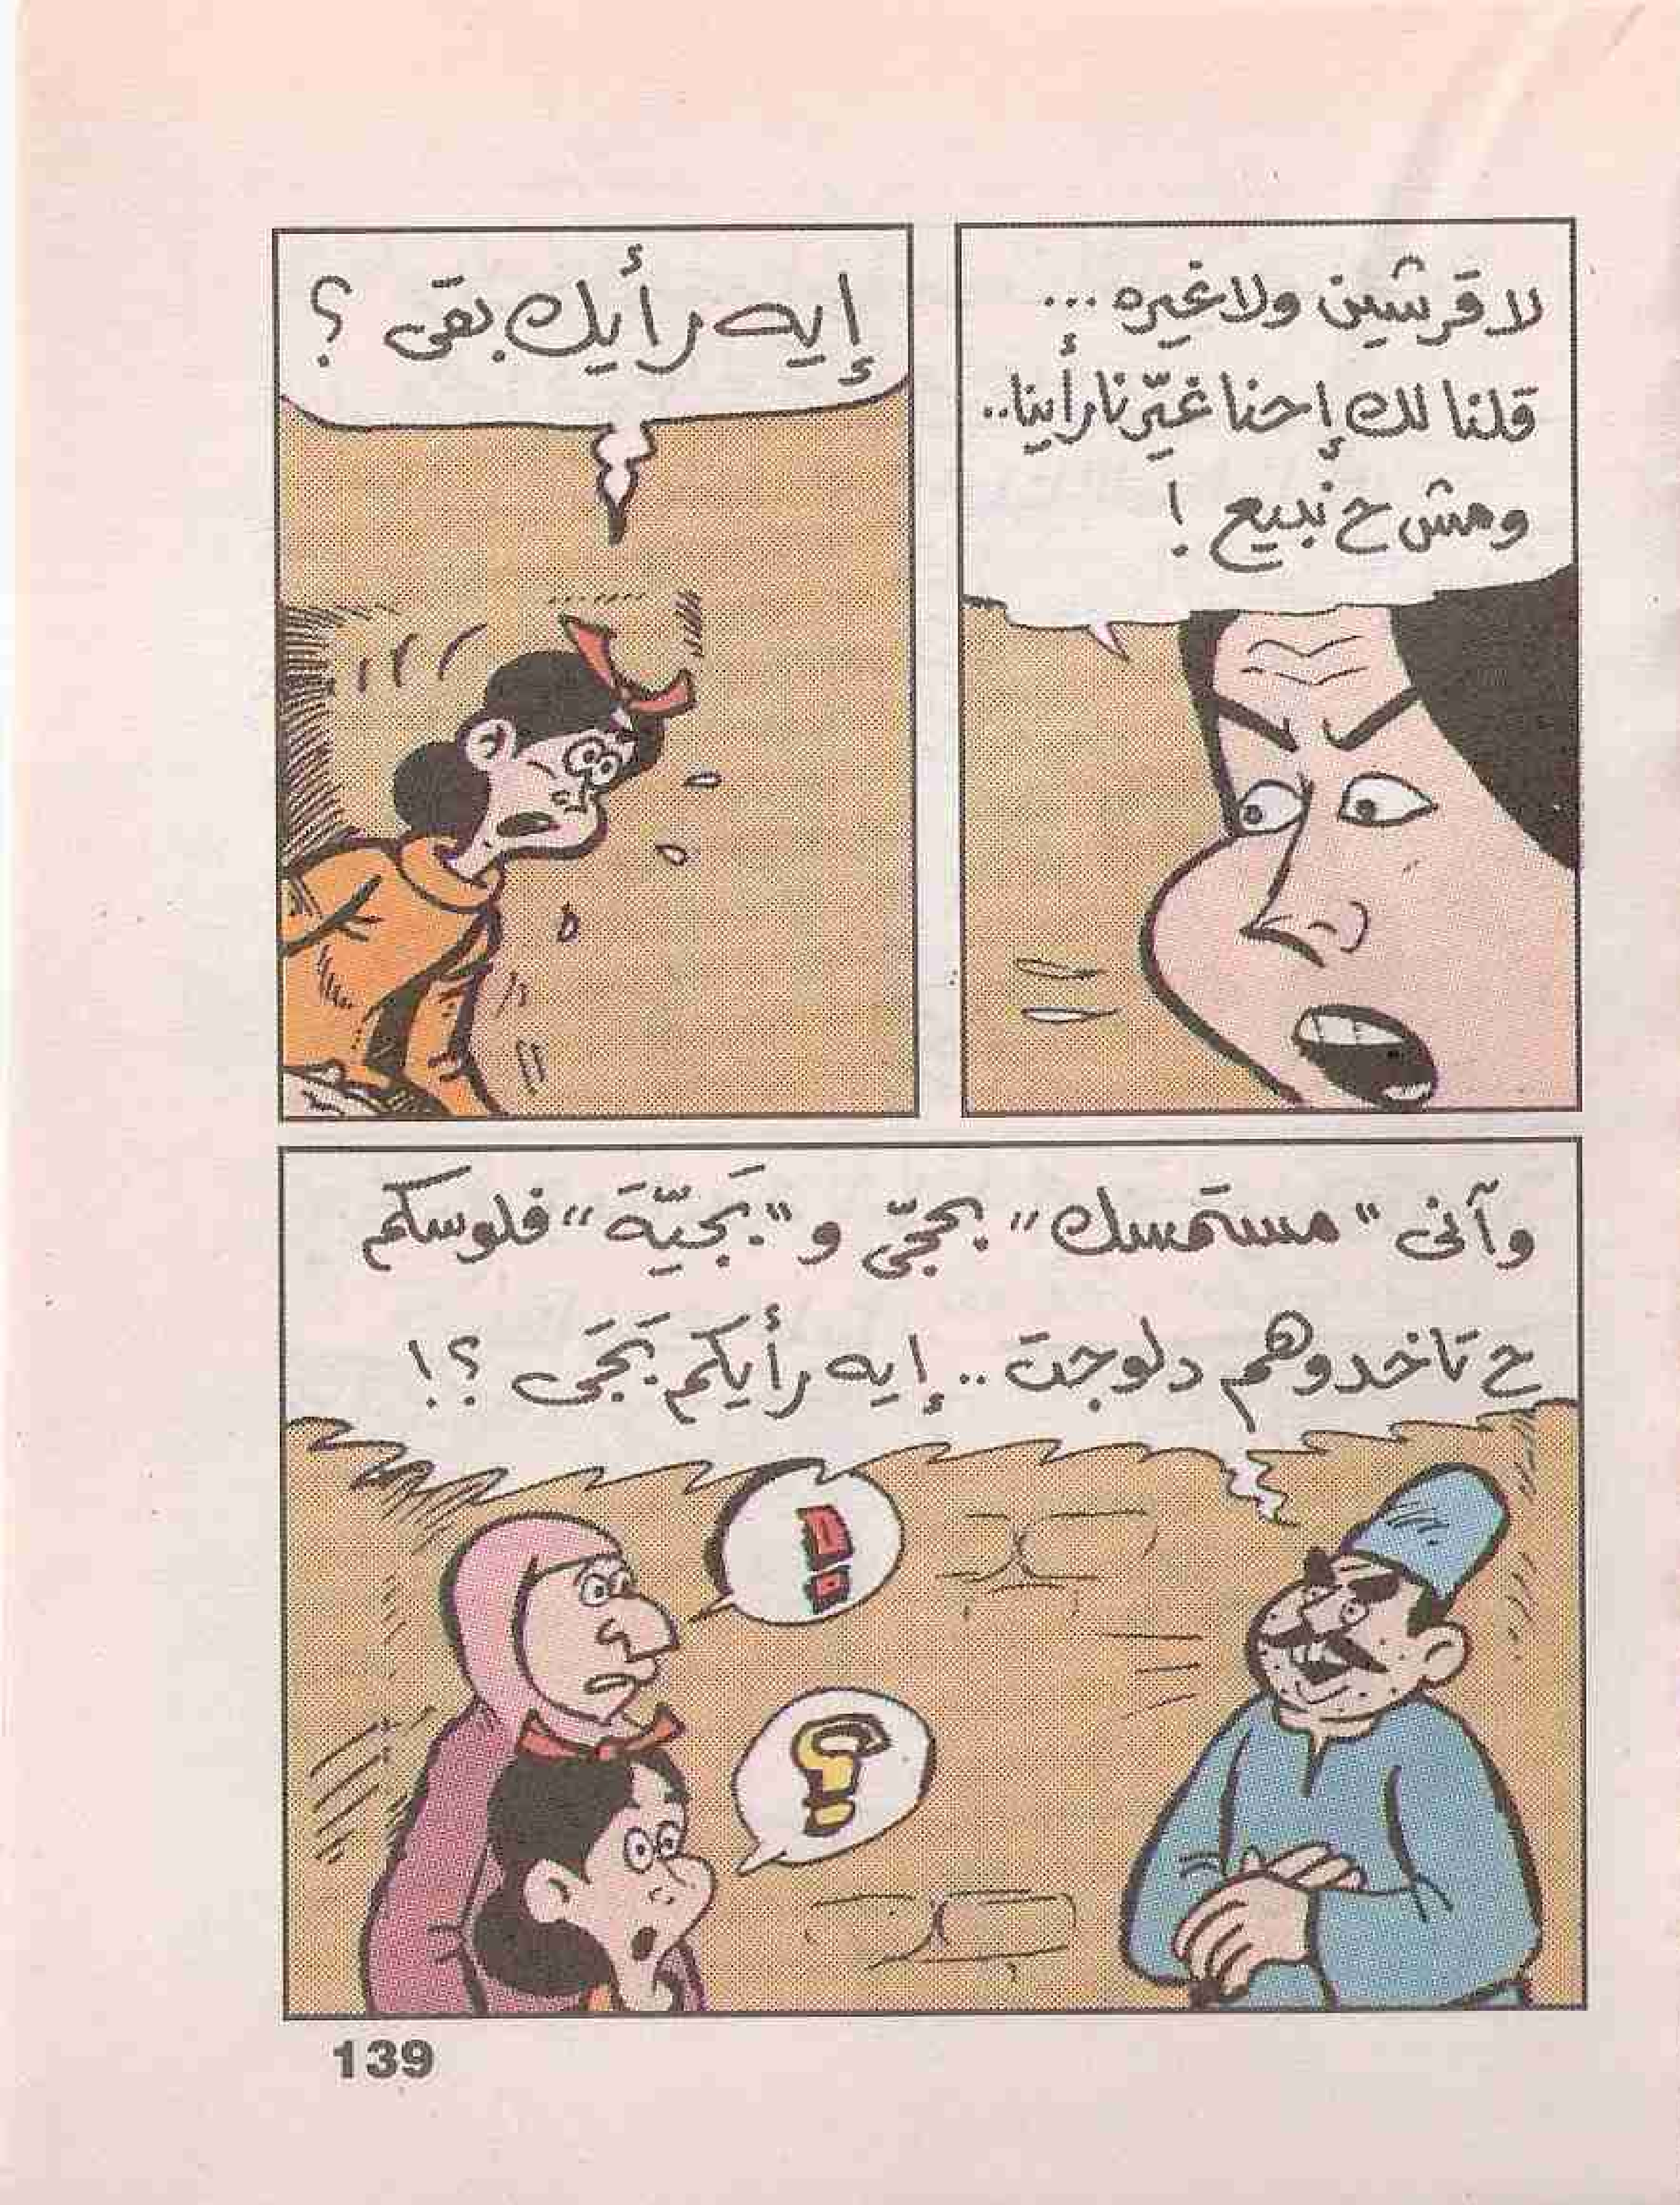 لا قرشين ولا غيره ...
قلنا لك إحنا غيّرنا رأينا..
ومش ح نبيع !
إيه رأيك بقى ؟
وآنى "مستمسك" بحجّى و "بَجيّةَ" فلوسكم
ح تاخدوهم دلوجت .. إيه رأيكم بَجَى ؟!
!
؟
139